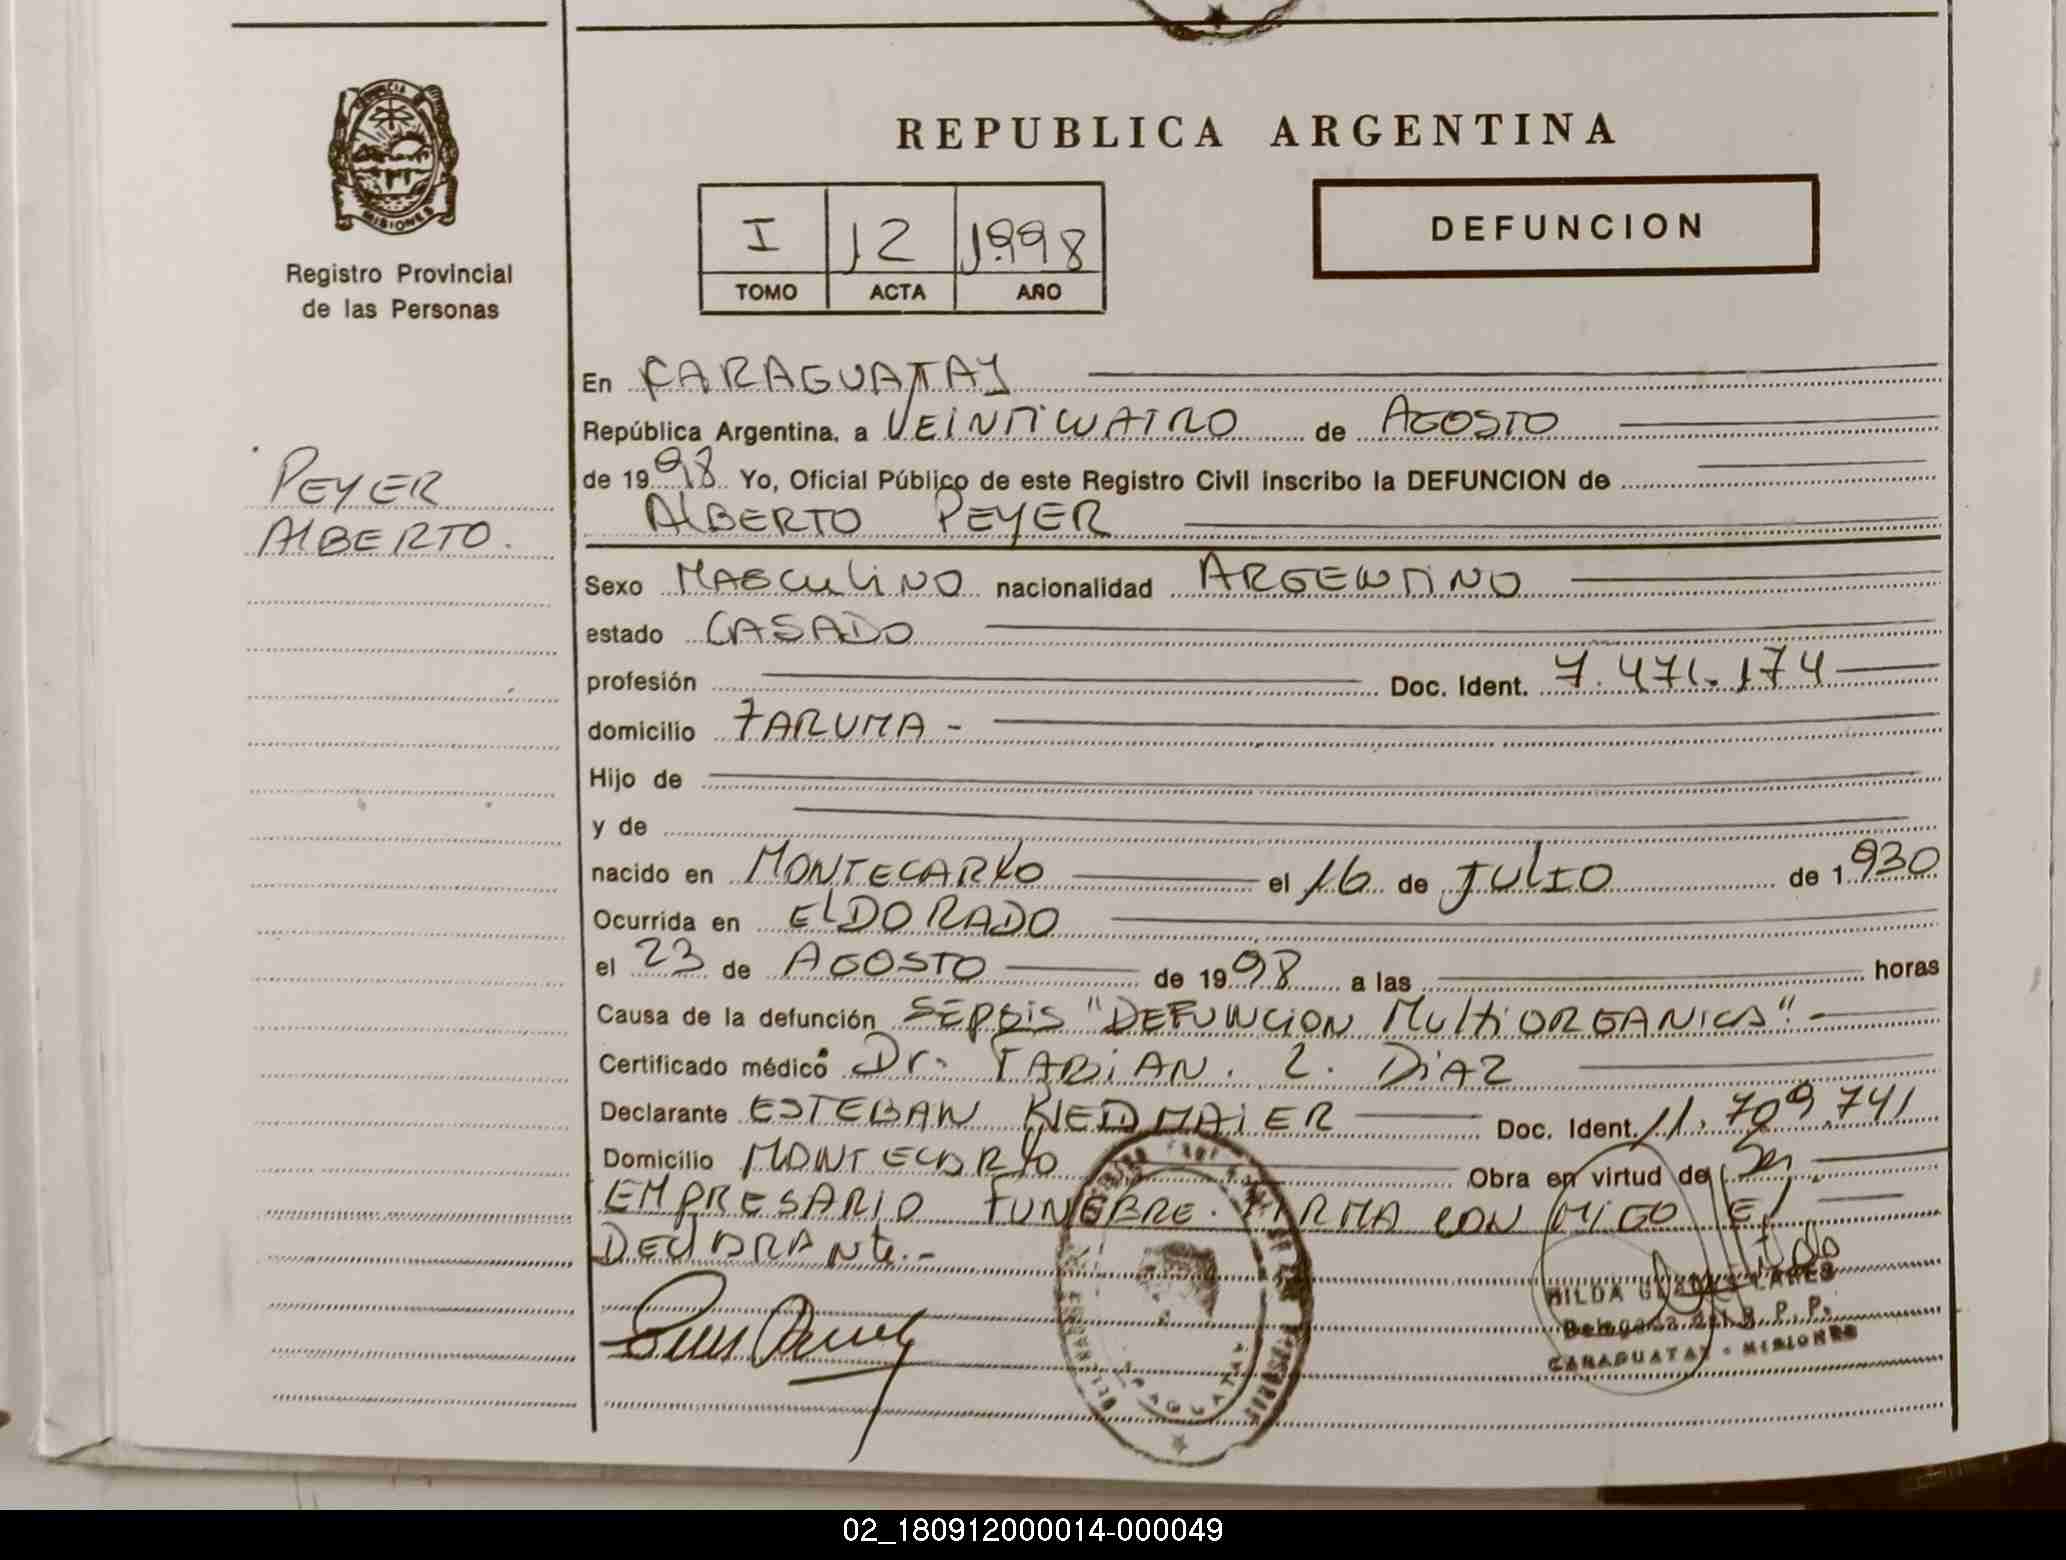 PROVINCIA DE
MISIONES
Registro Provincial
de las Personas
PEYER
ALBERTO.
REPUBLICA ARGENTINA
I 12 1998
TOMO ACTA AÑO
DEFUNCION
En CARAGUATAY
República Argentina, a VEINTICUATRO de AGOSTO
de 1998 Yo, Oficial Público de este Registro Civil inscribo la DEFUNCION de
ALBERTO PEYER
Sexo MASCULINO nacionalidad ARGENTINO
estado CASADO
profesión Doc. Ident. 7.471.174
domicilio TARUMA -
Hijo de
y de
nacido en MONTECARLO el 16 de JULIO de 1930
Ocurrida en ELDORADO
el 23 de AGOSTO de 1998 a las horas
Causa de la defunción SEPSIS "DEFUNCION MULTIORGANICA".-
Certificado médico Dr. FABIAN. Z. DIAZ
Declarante ESTEBAN RIEDMAIER Doc. Ident. 11.709.741
Domicilio MONTECARLO Obra en virtud de Ser
EMPRESARIO FUNEBRE. FIRMA CON MIGO El
DECLARANTE.-
HILDA
Delegada del R. P. P.
CARAGUATAY - MISIONES
02_180912000014-000049